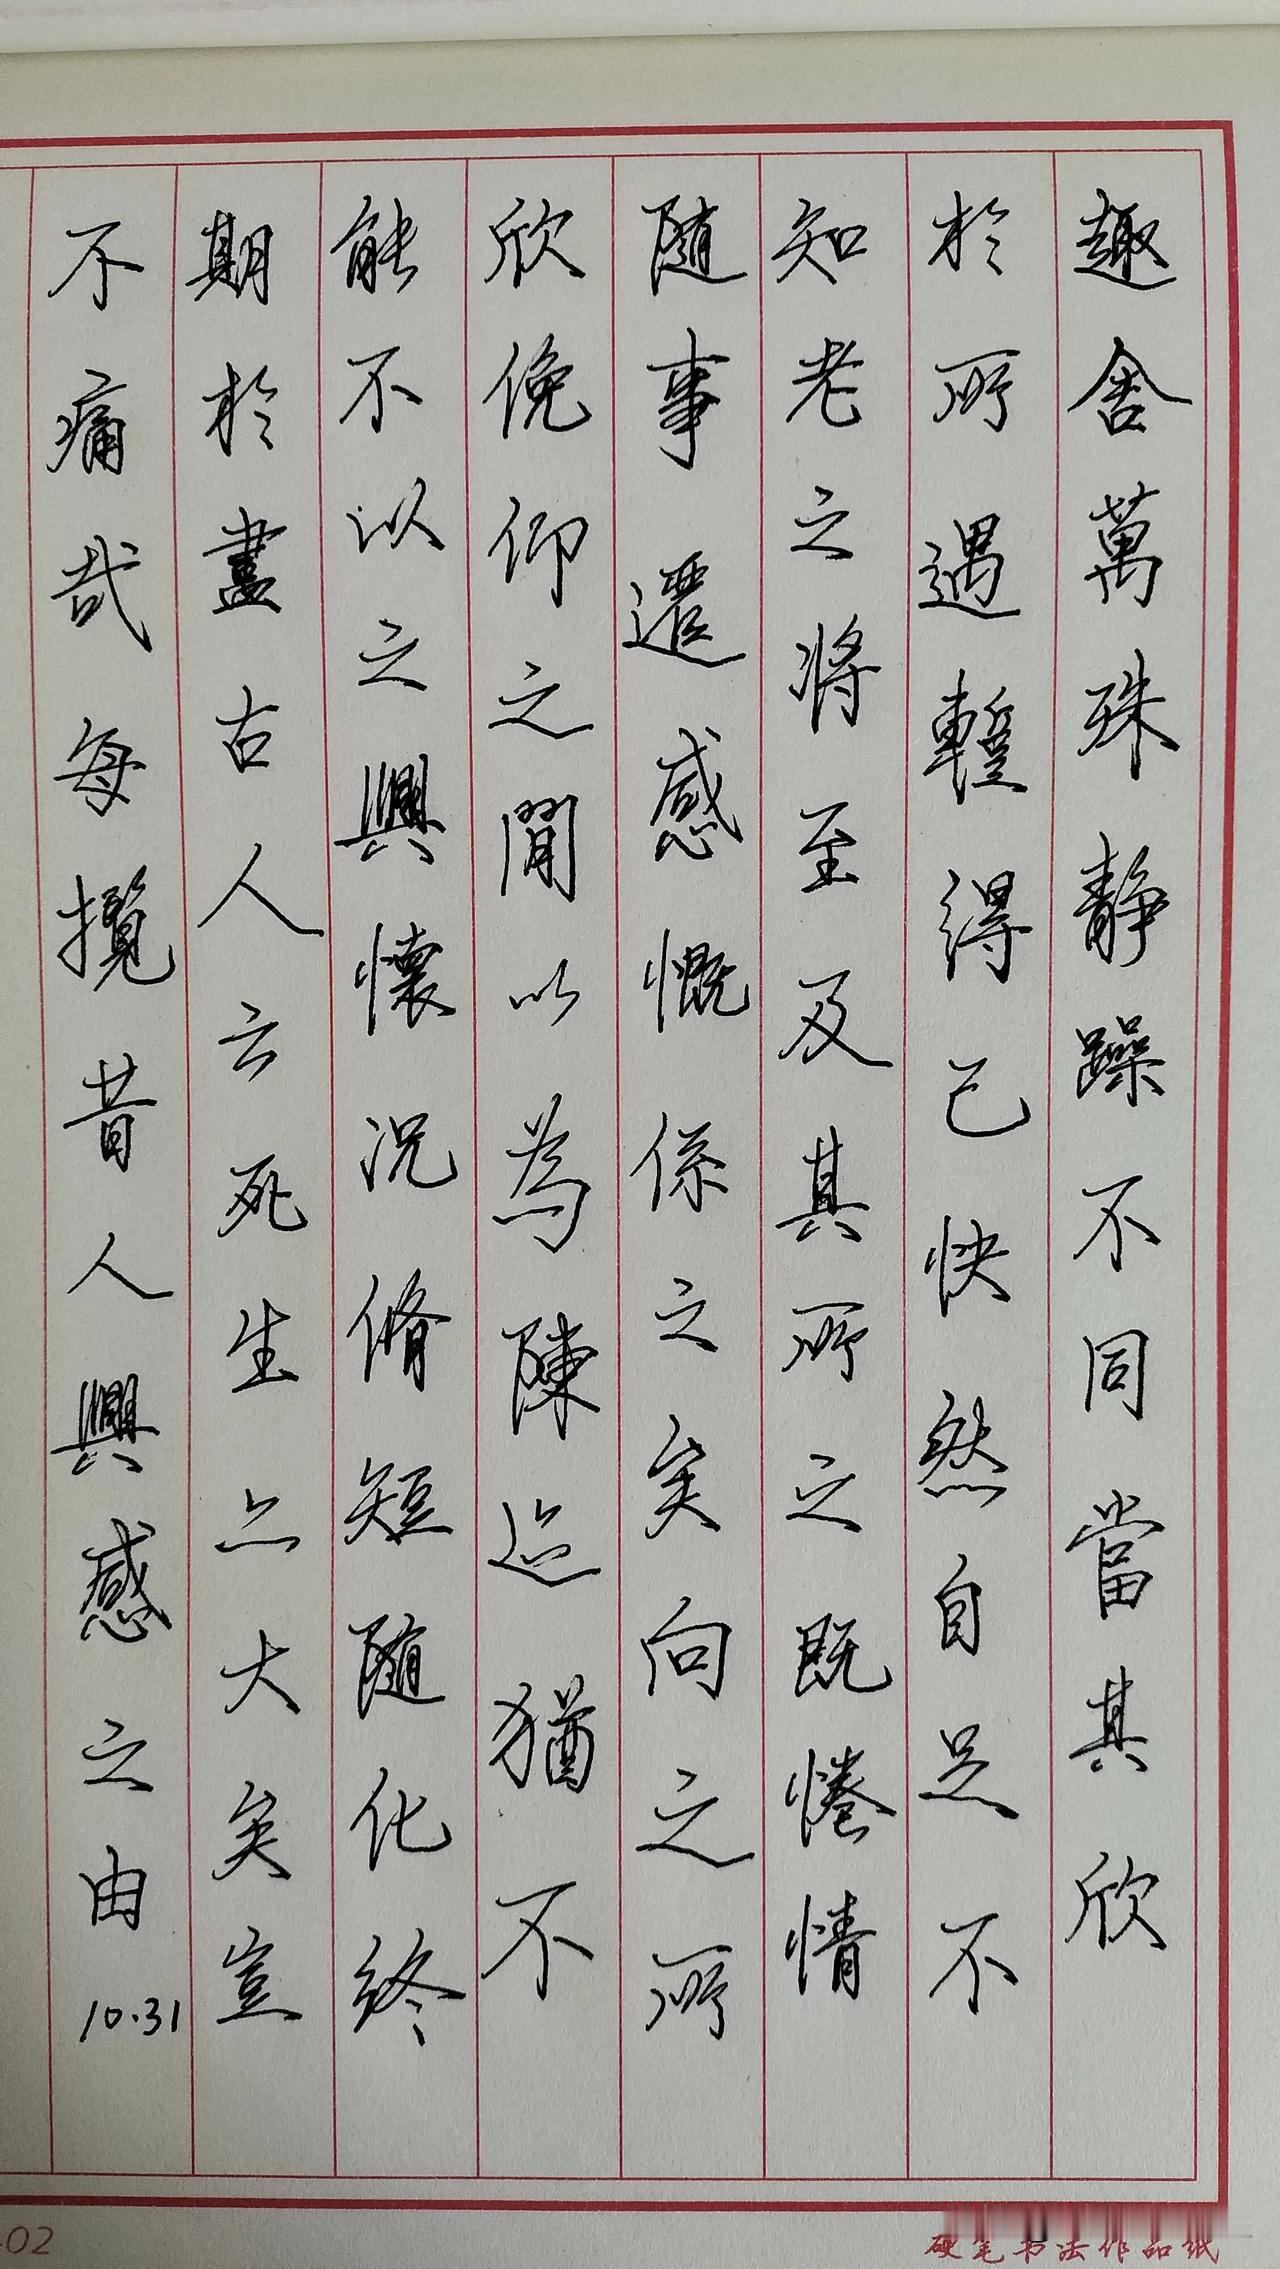 趣舍萬殊靜躁不同當其欣
於所遇暫得己快然自足不
知老之將至及其所之既惓情
隨事遷感慨係之矣向之所
欣俛仰之間以為陳迹猶不
能不以之興懷況脩短隨化終
期於盡古人云死生亦大矣豈
不痛哉每攬昔人興感之由
10.31
硬笔书法作品纸
-02